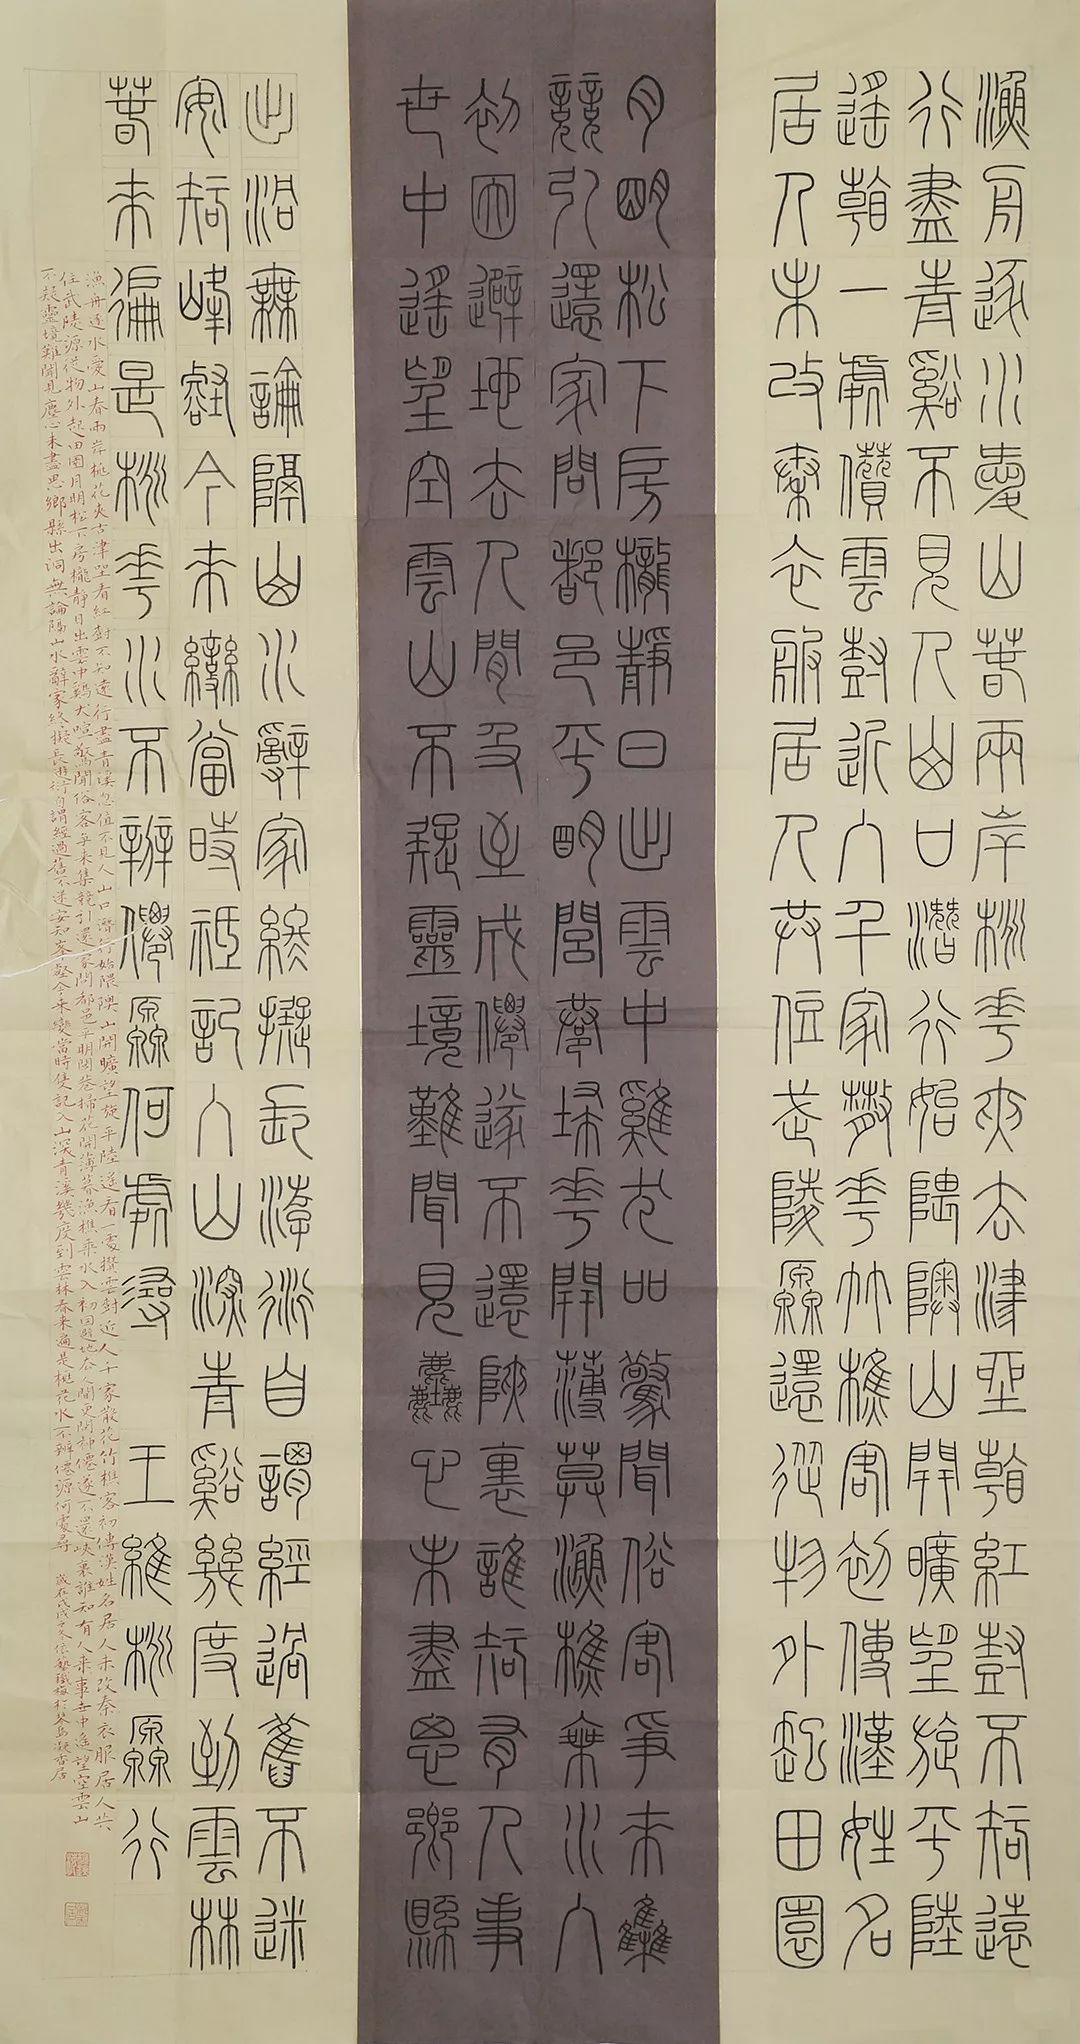 漁舟逐水愛山春兩岸桃花夾去津坐看紅樹不知遠
行盡青谿不見人山口潛行始隈隩山開曠望旋平陸
遙看一處攢雲樹近入千家散花竹樵客初傳漢姓名
居人未改秦衣服居人共住武陵源還從物外起田園
月明松下房櫳靜日出雲中雞犬喧驚聞俗客爭來集
競引還家問都邑平明閭巷掃花開薄暮漁樵乘水入
初因避地去人間及至成僊遂不還峽裏誰知有人事
世中遙望空雲山不疑靈境難聞見塵心未盡思鄉縣
出洞無論隔山水辭家終擬長游衍自謂經過舊不迷
安知峰壑今來變當時衹記入山深青谿幾度到雲林
春來遍是桃花水不辨僊源何處尋 王維桃源行
漁舟逐水愛山春兩岸桃花夾古津坐看紅樹不知遠行盡青溪忽值不見人山口潛行始隈隩山開曠望旋平陸遙看一處攢雲樹近入千家散花竹樵客初傳漢姓名居人未改秦衣服居人共
住武陵源從物外起田園月明松下房櫳靜日出雲中鷄犬喧驚聞俗客爭來集競引還家問都邑平明閭巷掃花開薄暮漁樵乘水入初因避地去人間更問神僊遂不還峽裏誰知有人來事世中遙望空雲山
不疑靈境難聞見塵心未盡思鄉縣出洞無論隔山水辭家終擬長遊衍自謂經過舊不迷安知峯壑今來變當時隻記入山深青溪幾度到雲林春來遍是桃花水不辨僊源何處尋 歲在戊戌之冬於琴島凝香居